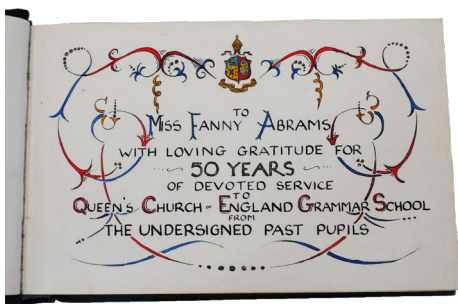 TO
MISS FANNY ABRAMS
WITH LOVING GRATITUDE FOR
50 YEARS
OF DEVOTED SERVICE
TO
QUEEN'S CHURCH OF ENGLAND GRAMMAR SCHOOL
FROM
THE UNDERSIGNED PAST PUPILS